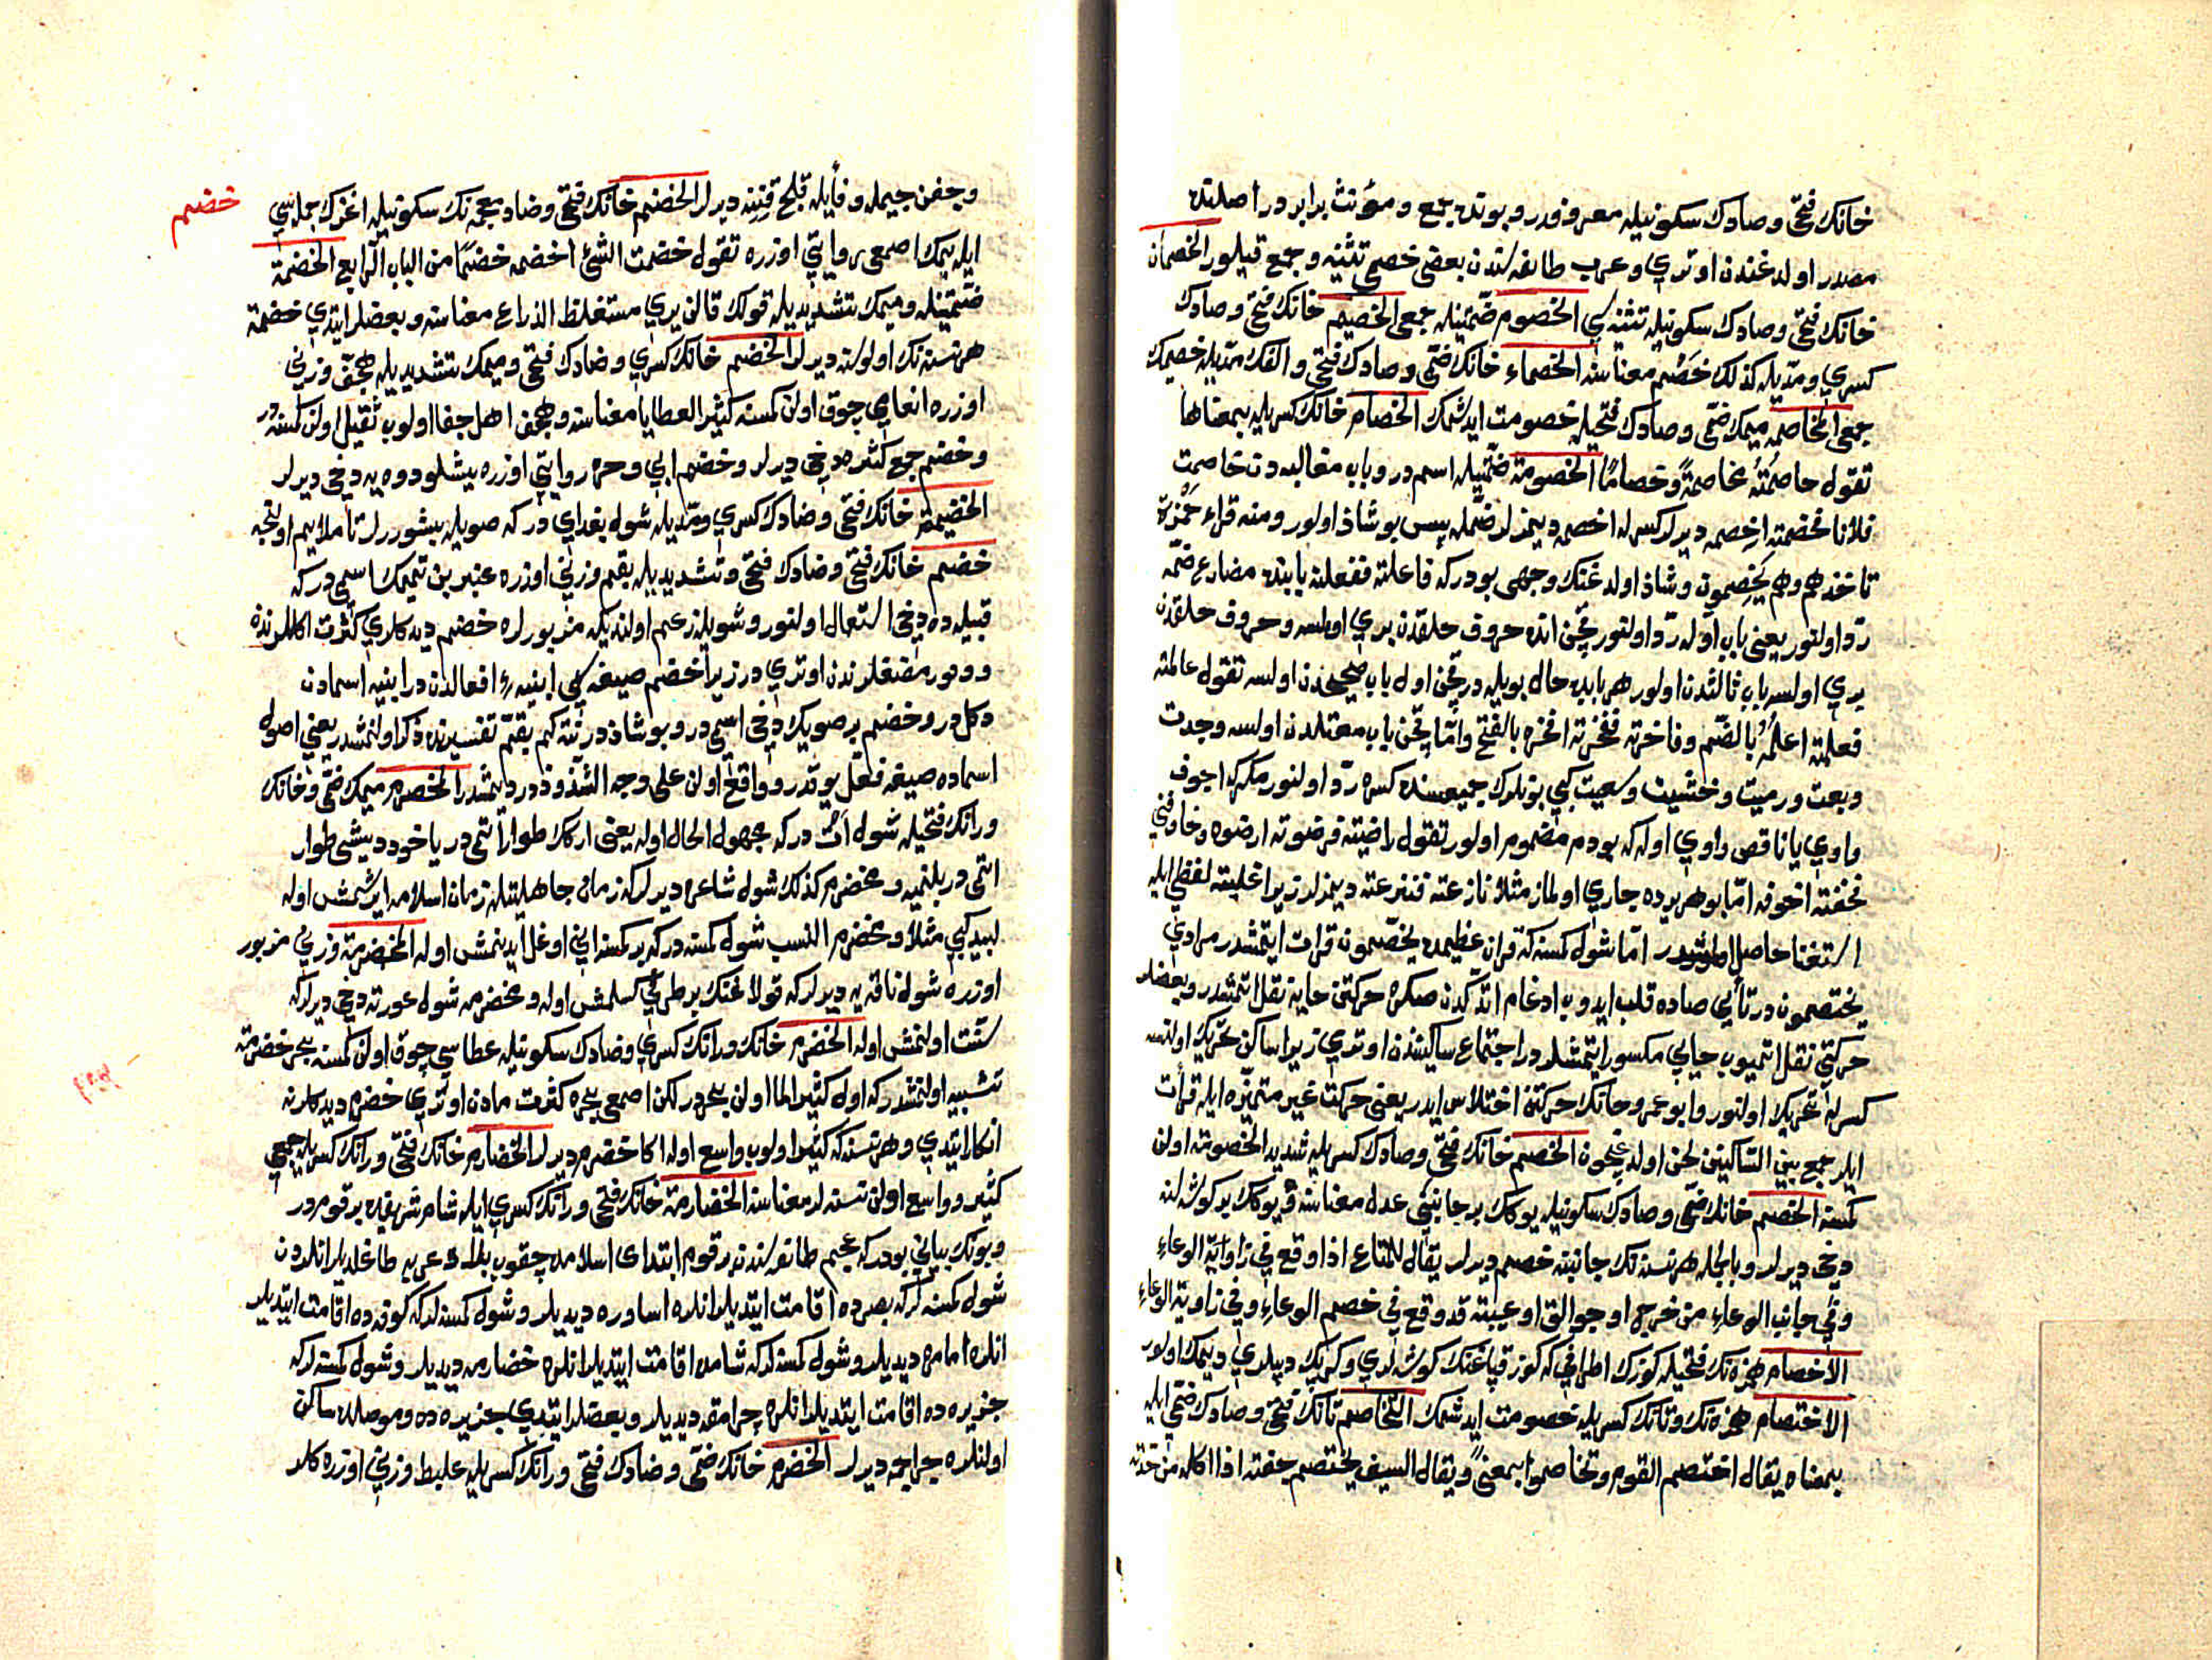 خانك فتحى وصادك سكونيله معروفدر وبونده جمع ومؤنث برابر در اصلنده
مصدر اولدغندن اوتري وعرب طائفه سندن بعضى خصمى تثنيه وجمع قيلور الخصمان
خانك فتحى وصادك سكونيله تثنيه سي الخصوم ضمّتينله جمعى الخصيم خانك فتحى وصادك
كسري ومدّيله كذلك خَصْم معناسنه الخصماء خانك ضمّى وصادك فتحى والفك مدّيله خصيمك
جمعى المخاصمه ميمك ضمّى وصادك فتحيله خصومت ايدشمك الخصام خانك كسريله بمعناها
تقول خاصمْتُهُ مخاصمةً وخصامًا الخصومة ضمّتينله اسمدر وباب مغالبه دن خاصمت
فلانا فخصمته اخصِمه ديرلر كسرله اخصمه ديمزلر ضمّله پس بو شاذ اولور ومنه قراء حَمْزة
تاخذهم وهم يَخْصِمون وشاذ اولدغنك وجهى بودركه فاعلته ففعلته بابنده مضارع ضمّه
ردّ اولنور يعنى باب اوّله ردّ اولنور قچن انده حروف حلقدن بري اولمسه وحروف حلقدن
بري اولسه باب ثالثدن اولور هر بابده حال بويله در قچن اول باب صحيحدن اولسه تقول عالمته
فعلمته اعلُمُه بالضّم وفاخرته ففخرته افخره بالفتح وامّا قچن باب معتلدن اولسه وجدت
وبعت ورميت وخشيت وسعيت كبي بونلرك جميعسنده كسره ردّ اولنور مكركه اجوف
واوي يا ناقص واوي اوله كه بو دم مضموم اولور تقول راضيته فرضوته ارضوه وخاوفني
فخفته اخوفه امّا بو هر يرده جاري اولماز مثلا نازعته فنزعته ديمزلر زيرا غلبته لفظى ايله
استغنا حاصل اولمشدر امّا شول كمسنه كه قرآن عظيمده يخصّمون قرائت ايتمشدر مرادي
يختصمون در تأيي صاده قلب ايدوب ادغام اتدكدن صكره حركتن خايه نقل اتمشدر وبعضلر
حركتي نقل اتميوب خايي مكسور ايتمشلر در اجتماع ساكنيندن اوتري زيرا ساكن تحريك اولنسه
كسرله تحريك اولنور وابو عمرو خانك حركتن اختلاس ايدر يعنى حركت غير متميّزه ايله قرأت
ايلر جمع بين السّاكنين لحن اولدغيچون الخصم خانك فتحى وصادك كسريله شديد الخصومته اولن
كمسنه الخصم خانك ضمّى وصادك سكونيله يوكك بر جانبنى عدل معناسنه ويوكك بر كوشه سنه
دخى ديرلر وبالجله هر نسنه نك جانبنه خصم ديرلر يقال للمتاع اذا وقع في زاوية الوعاء
وفي جانب الوعاء من خرج او جوالق او عيبته قد وقع في خصم الوعاء وفي زاوية الوعاء
الاخصام همزه نك فتحيله كوزك اطرافي كه كوز قپاغنك كوشه لري وكرپك ديبلري ديمك اولور
الاختصام همزه نك وتانك كسريله خصومت ايدشمك التّخاصم تانك فتحى وصادك ضمّى ايله
بمعناه يقال اختصم القوم وتخاصموا بمعنىً ويقال السيف يختصم جفنه اذا اكله من حدّته
وجفن جيمله وفأيله قلج قينينه ديرلر الخضم خانك فتحى وضاد معجمه نك سكونيله اغزك جمله سي
خضم
ايله يمك اصمعى روايتي اوزره تقول خضمت الشئ اخضمه خضمًا من الباب الرابع الخضمة
ضمّتينله وميمك تشديديله قولك قالن يري مستغلظ الذراع معناسنه وبعضلر ايتدي خضمة
هر نسنه نك اولوسنه ديرلر الخضم خانك كسري وضادك فتحى وميمك تشديديله هجفّ وزنى
اوزره انعامي چوق اولن كمسنه كثير العطايا معناسنه وهجف اهل جفا اولوب ثقيل اولن كمسنه در
وخضم جمع كثيره دخى ديرلر وخضم ابي وحره روايتي اوزره بيشلو دوه يه دخى ديرلر
الخضيمة خانك فتحى وضادك كسري ومدّيله شول بغداي در كه صويله بيشوررلر تا ملايم اولنجه
خضم خانك فتحى وضادك فتحى وتشديديله بقم وزنى اوزره عنبر بن تميمك اسمى در كه
قبيله ده دخى استعمال اولنور وشويله زعم اولنديكه مزبورلره خضم ديدكلري كثرت اكللرنده
ودور مضغلرندن اوتري در زيرا خضم صيغه سي ابنيه افعالدن در ابنيه اسمادن
دكل در وخضم بر صويك دخى اسمى در وبو شاذ در نته كم بقّم تفسيرنده ذكر اولنمشدر يعنى اصول
اسماده صيغه فعّل يوقدر وواقع اولن على وجه الشّذوذ در ديمشلر الخضرم ميمك ضمّى وخانك
ورانك فتحيله شول اَتْ در كه مجهول الحال اوله يعنى اركك طوار اتى در ياخود ديشى طوار
اتمى در بلنميه ومخضرم كذلك شول شاعره ديرلر كه زمان جاهليتله زمان اسلامه ايرشمش اوله
لبيد كبي مثلا ومخضرم النسب شول كمسنه در كه بر كمسنه انى اوغل ايدنمش اوله المخضرمة وزنى مزبور
اوزره شول ناقه يه ديرلر كه قولاغنك بر طرفى كسلمش اوله ومخضرمه شول عورته دخى ديرلر كه
سنّت اولنمش اوله الخضرم خانك ورانك كسري وضادك سكونيله عطاسي چوق اولن كمسنه بحر خضرمه
تشبيه اولنمشدر كه اول كثير الماء اولن بحر در لكن اصمعى بحره كثرت مادن اوتري خضرم ديدكلرنه
انكار ايتدي وهر نسنه كه كثير اولوب واسع اوله اكا خضرم ديرلر الخضارم خانك فتحى ورانك كسريله جمعي
كثير وواسع اولن نسنه لر معناسنه الخضارمة خانك فتحى ورانك كسري ايله شام شريفده بر قومدر
وبونك بياني بودركه عجم طائفه سندن بر قوم ابتداى اسلامده چقوب بلاد عربه طاغلديلر انلردن
شول كمسنه لر كه بصره ده اقامت ايتديلر انلره اساوره ديديلر وشول كمسنه لر كه كوفه ده اقامت ايتديلر
انلره احامره ديديلر وشول كمسنه لر كه شامده اقامت ايتديلر انلره خضارمه ديديلر وشول كمسنه لر كه
جزيره ده اقامت ايتديلر انلره جرامقه ديديلر وبعضلر ايتدي جزيره ده وموصلده ساكن
اولنلره جراجمه ديرلر الخضرم خانك ضمّى وضادك فتحى ورانك كسريله علبط وزنى اوزره كلر